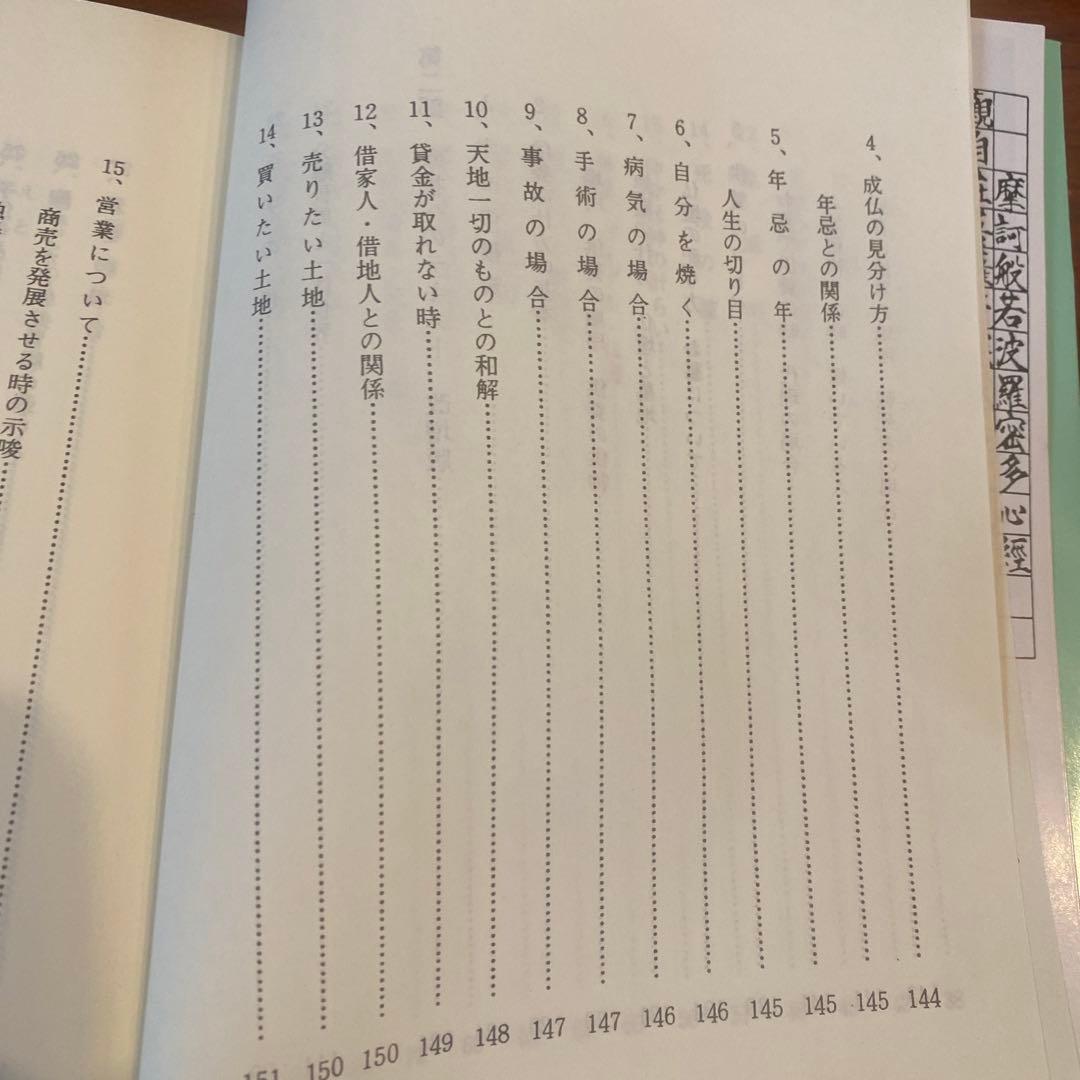 摩訶般若波羅蜜多心經
4、成仏の見分け方……144
年忌との関係……145
5、年忌の年……145
人生の切り目……145
6、自分を焼く……146
7、病気の場合……146
8、手術の場合……147
9、事故の場合……147
10、天地一切のものとの和解……148
11、貸金が取れない時……149
12、借家人・借地人との関係……150
13、売りたい土地……150
14、買いたい土地……151
15、営業について……
商売を発展させる時の示唆……